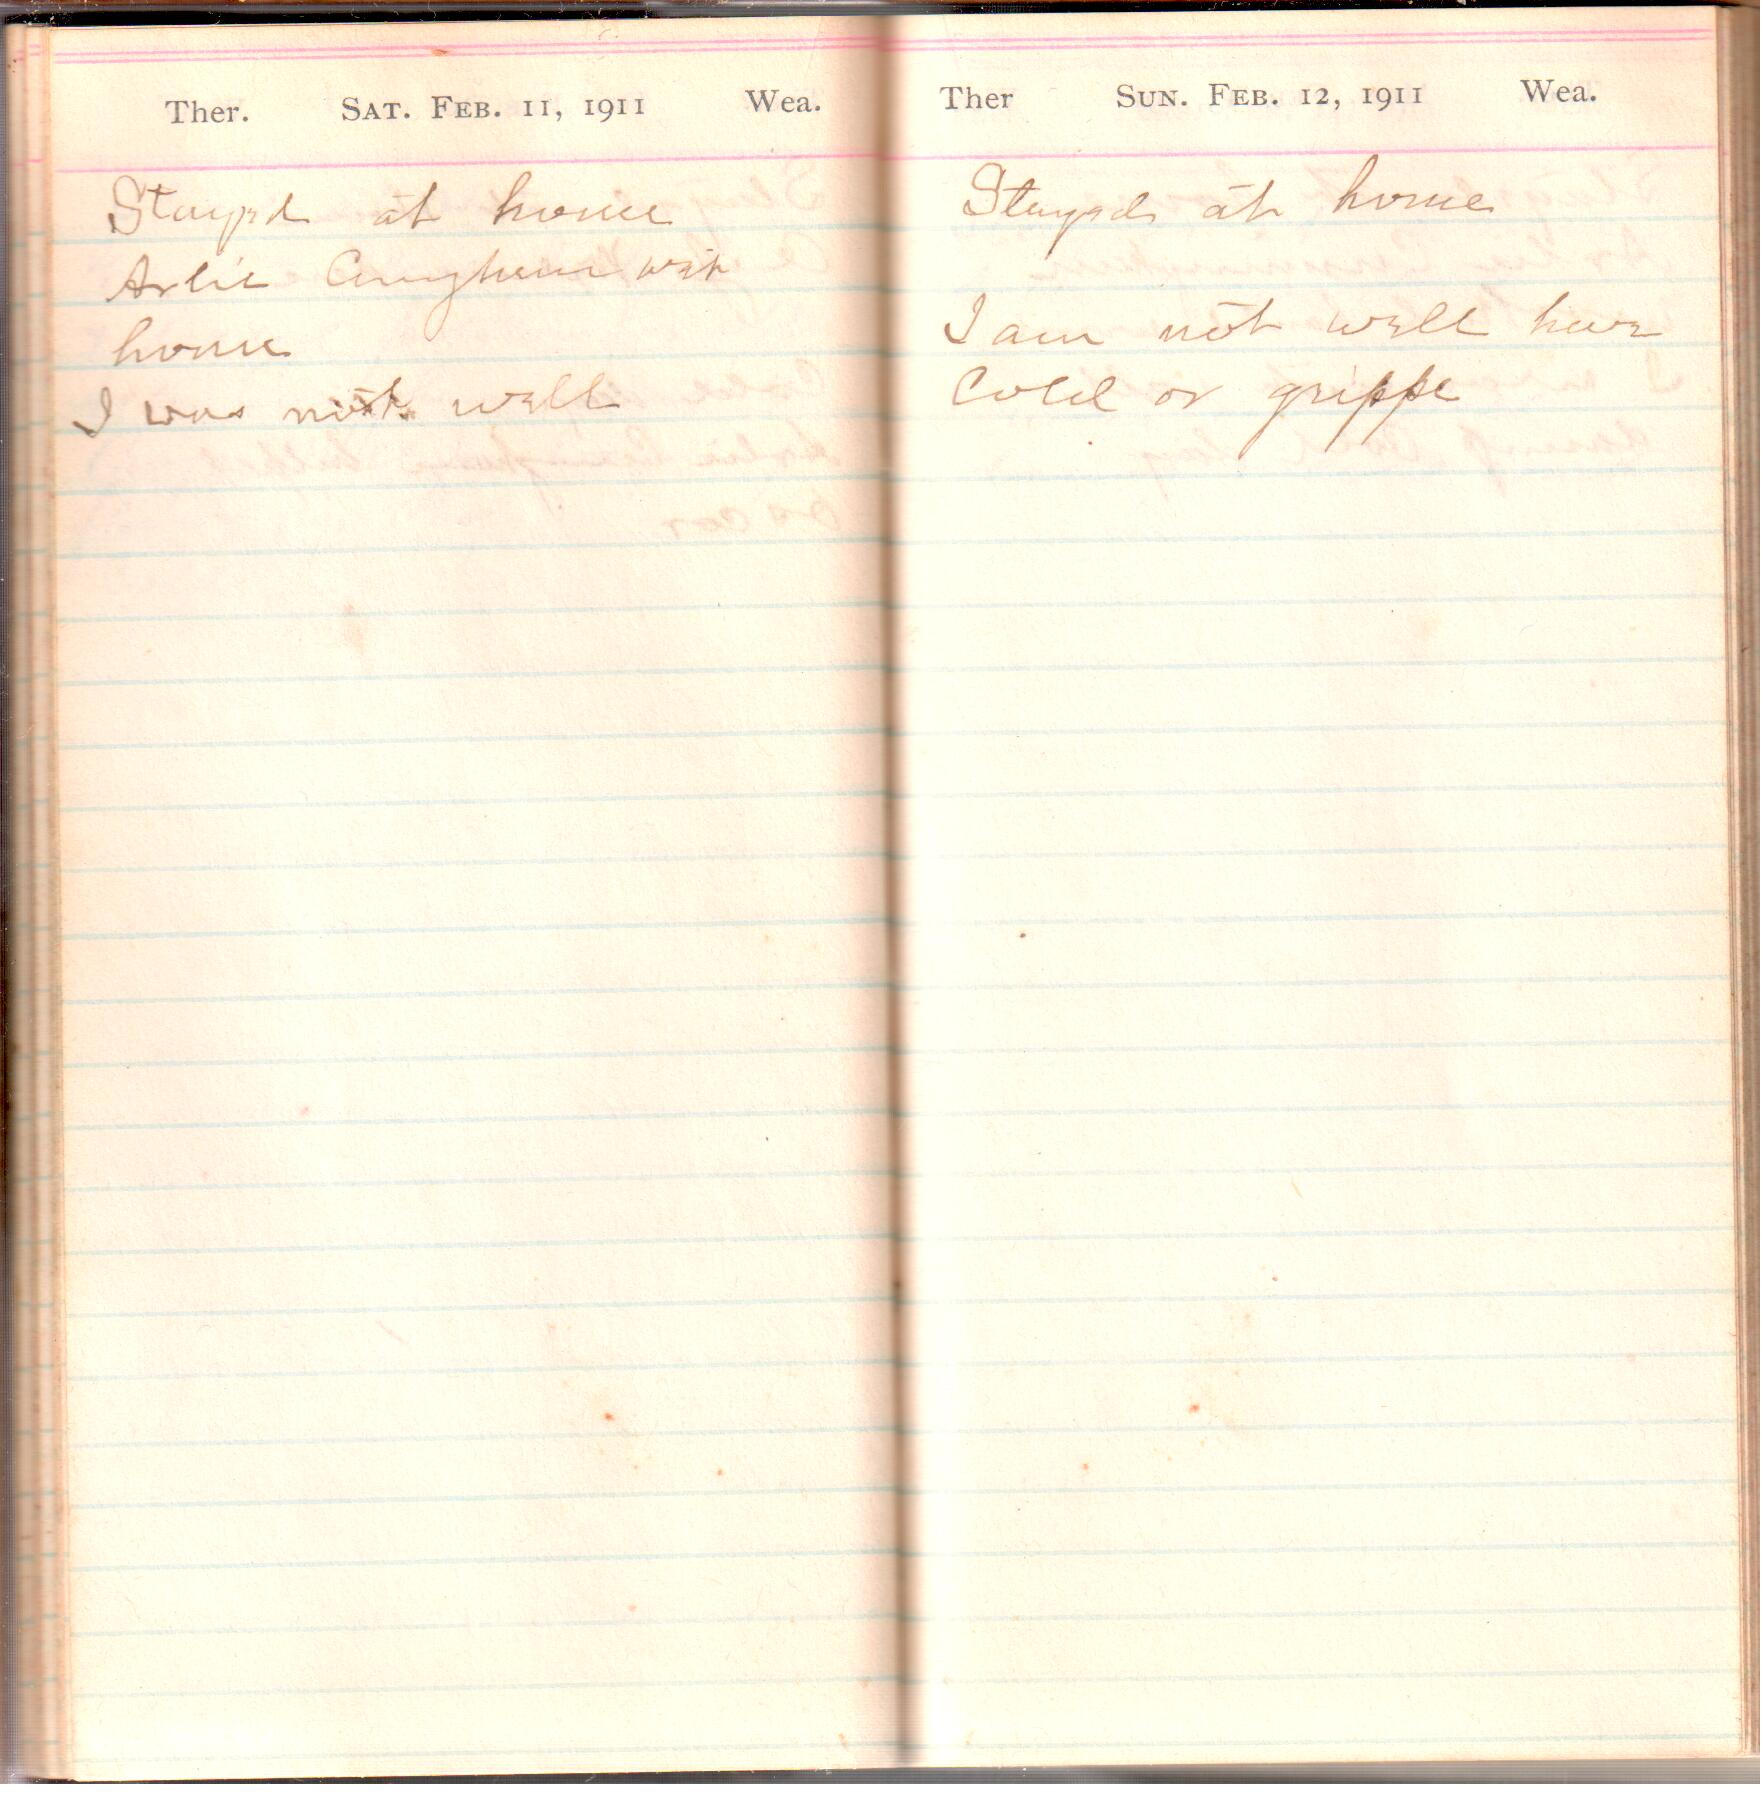 Ther. SAT. FEB. 11, 1911 Wea.
Stayed at home
Arlie Cunyham wet
home
I was not well
Ther SUN. FEB. 12, 1911 Wea.
Stayed at home
I am not well have
Cold or grippe